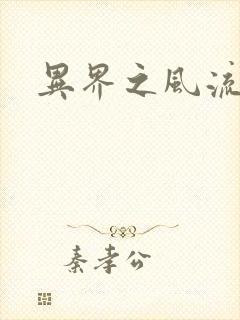 異界之風流
秦孝公